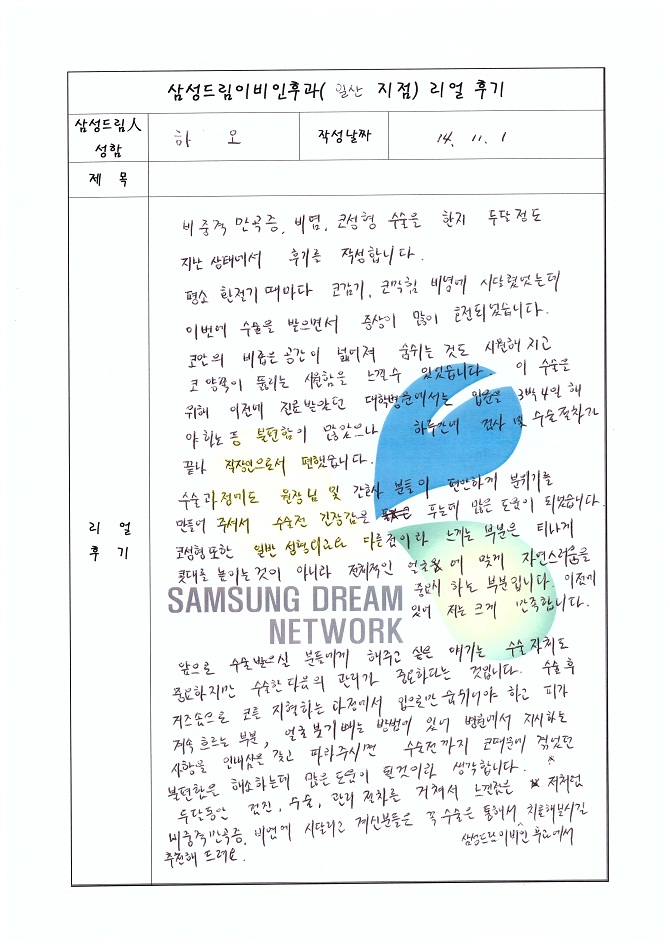 삼성드림이비인후과( 일산 지점) 리얼 후기
삼성드림人 성함
하 오
작성날짜
14. 11. 1
제 목
리 얼 후 기
비중격 만곡증, 비염, 코성형 수술을 한지 두달정도
지난 상태에서 후기를 작성합니다.
평소 환절기 때마다 코감기, 코막힘 비염에 시달렸었는데
이번에 수술을 받으면서 증상이 많이 호전되었습니다.
코안의 비좁은 공간이 넓어져 숨쉬는 것도 시원해지고
코 양쪽이 뚫리는 시원함을 느낄수 있었습니다. 이 수술을
위해 이전에 진료받았던 대학병원에서는 입원을 3박4일 해
야하는 등 불편함이 많았으나 하루만에 검사 및 수술절차가
끝나 직장인으로서 편했습니다.
수술과정에도 원장님 및 간호사 분들이 편안하게 분위기를
만들어 주셔서 수술전 긴장감을 푸는데 많은 도움이 되었습니다.
코성형 또한 일반 성형외과와 다른점이라 느끼는 부분은 티나게
콧대를 높이는것이 아니라 전체적인 얼굴에 맞게 자연스러움을
중요시 하는 부분입니다. 이점에
있어 저는 크게 만족합니다.
SAMSUNG DREAM
NETWORK
앞으로 수술받으실 분들에게 해주고 싶은 얘기는 수술자체도
중요하지만 수술한 다음의 관리가 중요하다는 것입니다. 수술후
거즈솜으로 코를 지혈하는 과정에서 입으로만 숨쉬어야 하고 피가
계속 흐르는 부분, 얼굴 붓기 빼는 방법에 있어 병원에서 지시하는
사항을 인내심을 갖고 따라주시면 수술전까지 코때문에 겪었던
불편함은 해소하는데 많은 도움이 될것이라 생각합니다.
두달동안 검진, 수술, 관리 절차를 거쳐서 느낀점은 저처럼
비중격만곡증, 비염에 시달리고 계신분들은 꼭 수술은 통해서 치료해보시길
삼성드림이비인후과에서
추천해 드려요.